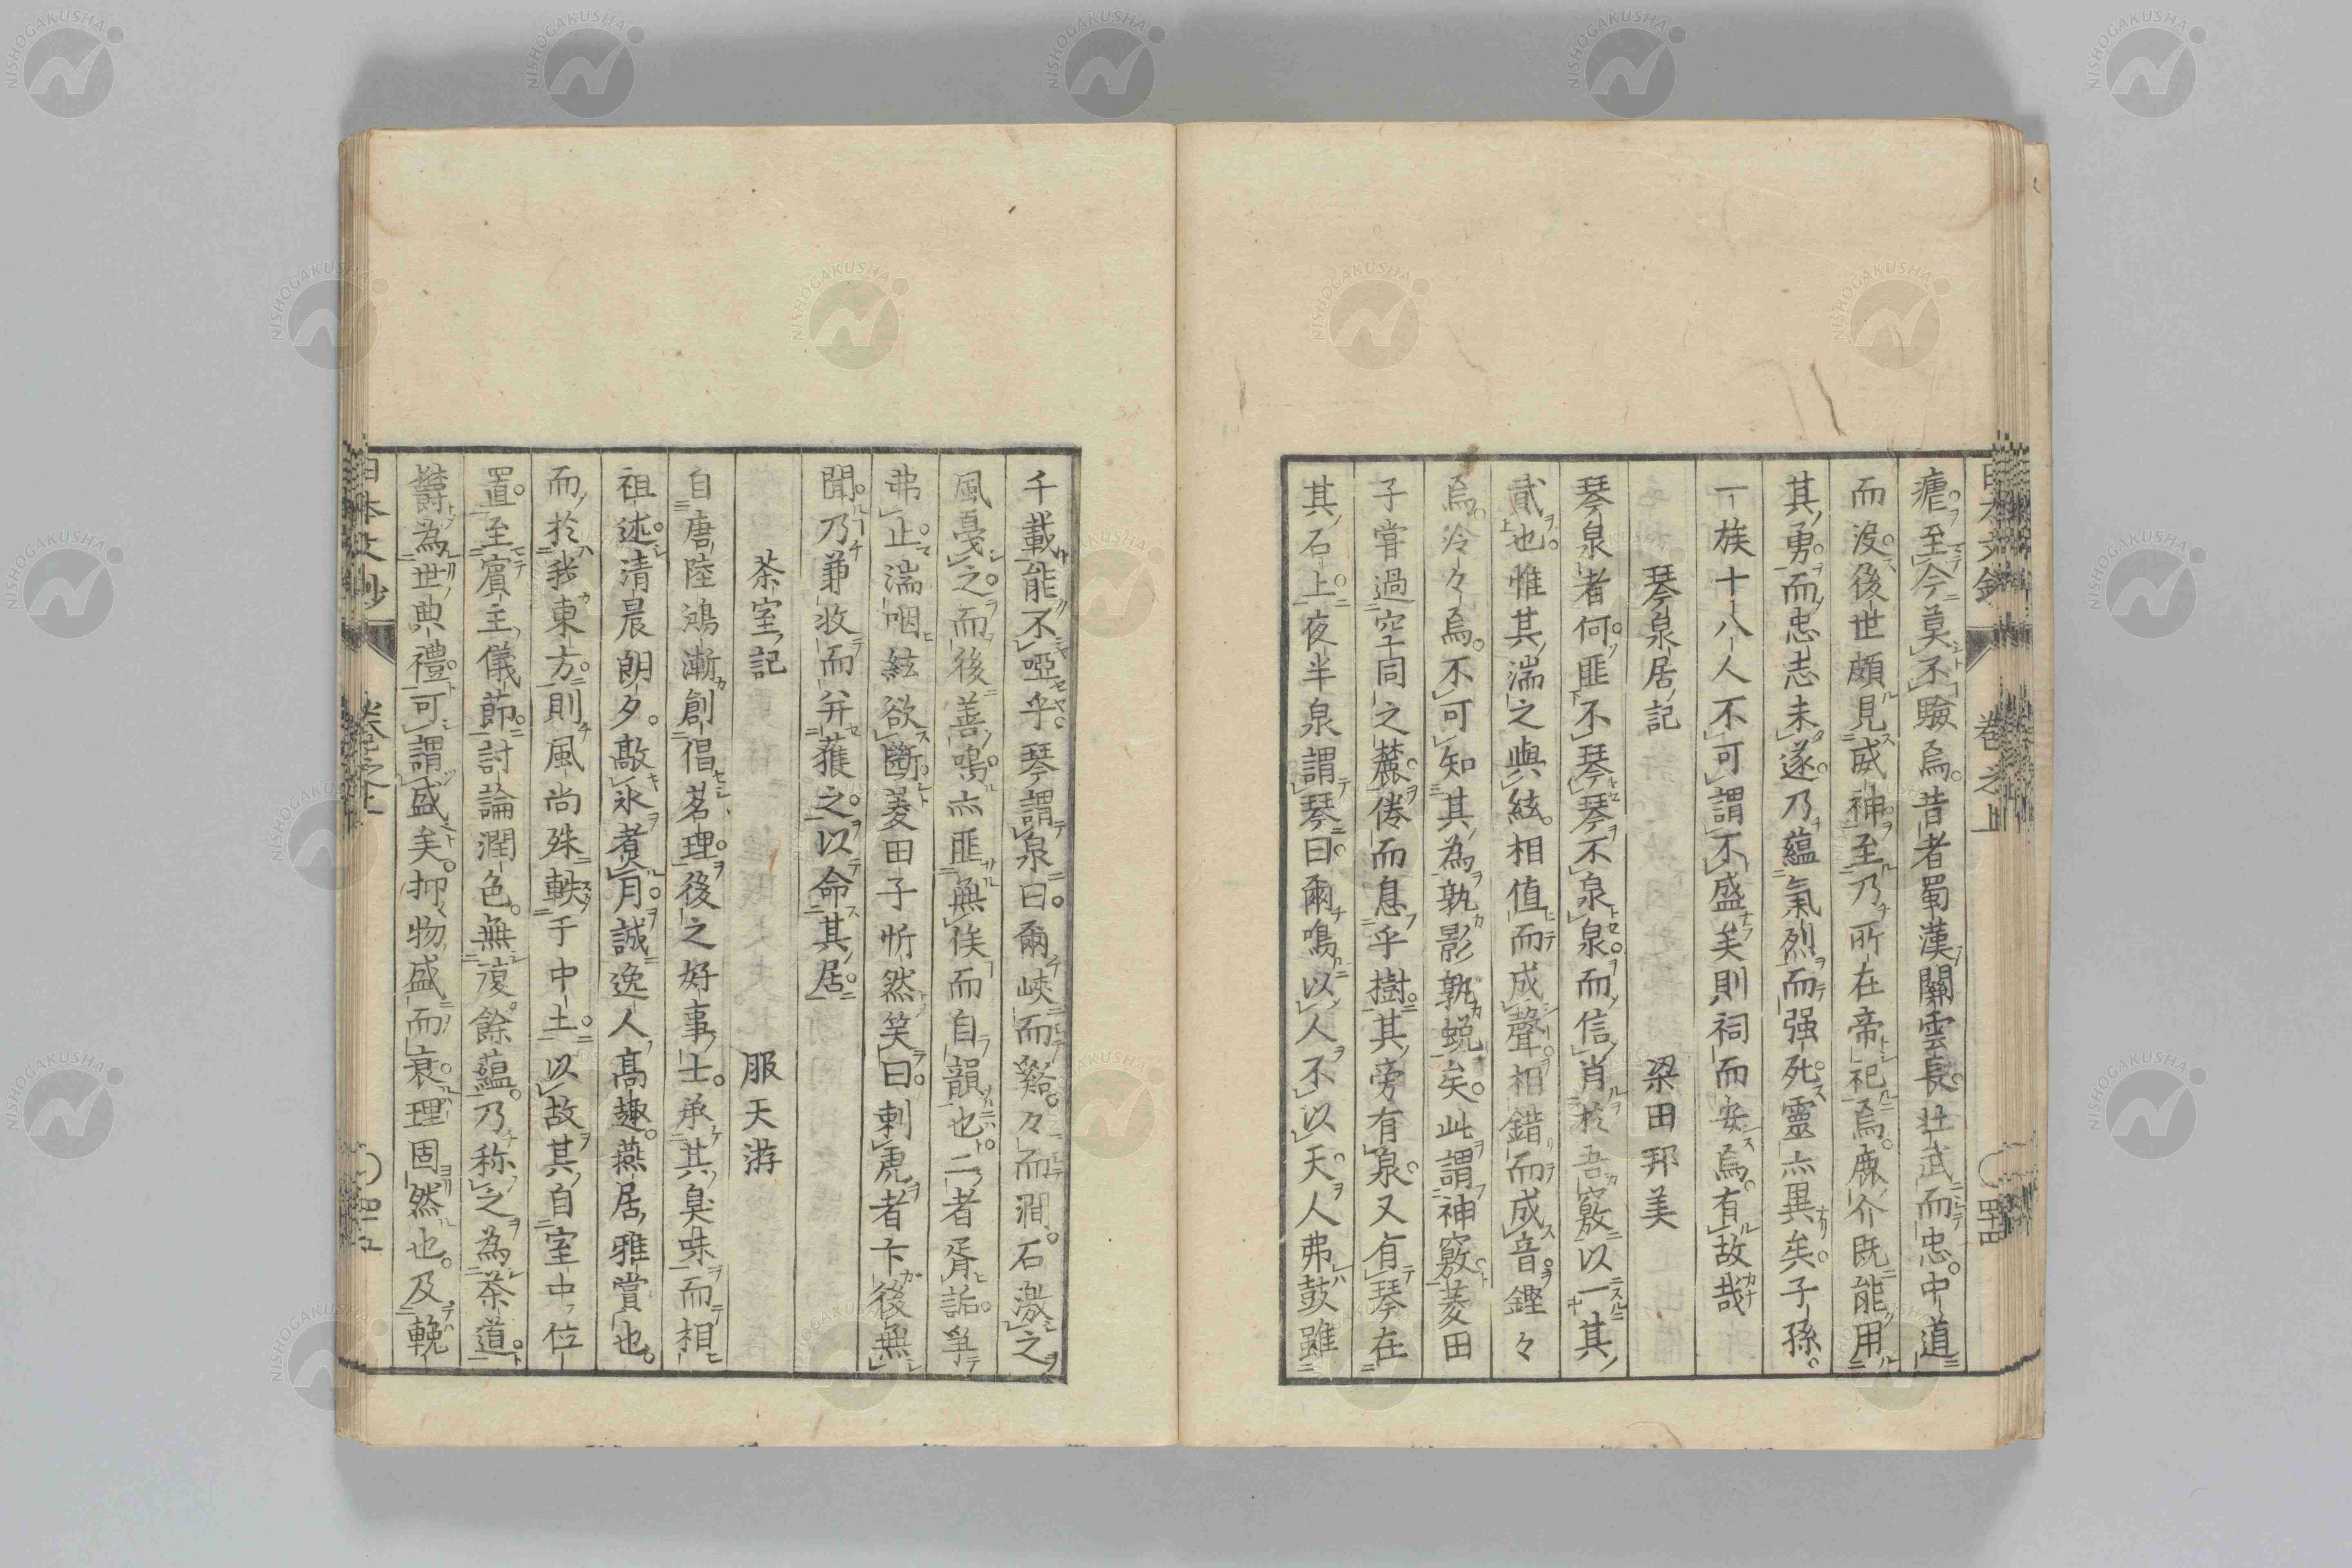 瘧至今莫不驗焉昔者蜀漢關雲長壯武而忠中道
而没後世頗見威神至乃所在帝祀焉鹿介既能用
其勇而忠志未遂乃蘊氣烈而强死靈亦異矣子孫
一族十八人不可謂不盛矣則祠而安焉有故哉
琴泉居記　梁田邦美
琴泉者何匪不琴琴不泉泉而信肖於吾竅以一其
貳也惟其湍之與絃相值而成聲相錯而成音鏗々
焉泠々焉不可知其為孰影孰蛻矣此謂神竅菱田
子嘗過空同之麓倦而息乎樹其旁有泉又有琴在
其石上夜半泉謂琴曰爾鳴以人不以天人弗鼓雖
千載能不啞乎琴謂泉曰爾峽而谿々而澗石激之
風戞之而後善鳴亦匪無俟而自韻也二者胥詬爭
弗止湍咽絃欲斷菱田子忻然笑曰刺虎者卞後無
聞乃兼收而并蓷之以命其居
茶室記　服天游
自唐陸鴻漸創倡茗理後之好事士承其臭味而相
祖述清晨朗夕敲氷煑月誠逸人高趣燕居雅賞也
而於我東方則風尚殊軼于中土以故其自室中位
置至賓主儀節討論潤色無復餘蘊乃称之為茶道
欝為世典禮可謂盛矣抑物盛而衰理固然也及輓
日本文鈔　卷之上
NISHOGAKUSHA